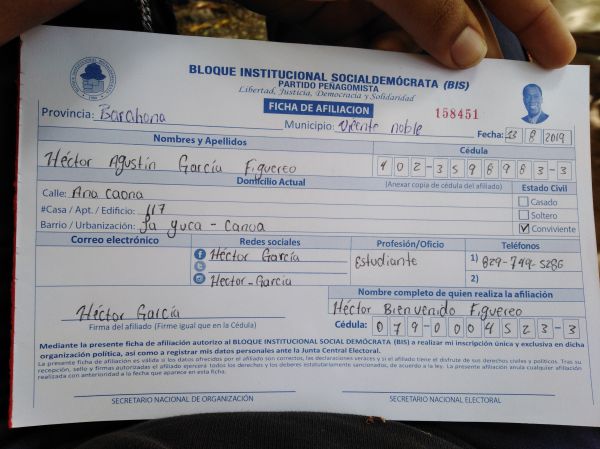 BLOQUE INSTITUCIONAL SOCIALDEMÓCRATA (BIS)
PARTIDO PEÑAGOMISTA
Libertad, Justicia, Democracia y Solidaridad
FICHA DE AFILIACION
158451
Provincia: Barahona
Municipio: Vicente noble
Fecha: 13 8 2019
Nombres y Apellidos
Cédula
Héctor Agustín García Figuereo
402-3598983-3
Domicilio Actual
(Anexar copia de cédula del afiliado)
Estado Civil
Calle: Ana Caona
Casado
#Casa / Apt. / Edificio: 117
Soltero
Barrio / Urbanización: La Yuca - Canoa
Conviviente
Correo electrónico
Redes sociales
Profesión/Oficio
Teléfonos
Héctor García
Estudiante
1) 829-749-5286
2)
Héctor-García
Nombre completo de quien realiza la afiliación
Héctor García
Héctor Bienvenido Figuereo
Firma del afiliado (Firme igual que en la Cédula)
Cédula: 079-0004523-3
Mediante la presente ficha de afiliación autorizo al BLOQUE INSTITUCIONAL SOCIAL DEMÓCRATA (BIS) a realizar mi inscripción única y exclusiva en dicha
organización política, así como a registrar mis datos personales ante la Junta Central Electoral.
La presente ficha de afiliación es valida si los datos ofrecidos por el afiliado son correctos, las declaraciones veraces y si el afiliado tiene el disfrute de sus derechos civiles y políticos. Tras su
recepción, sello y firmas autorizadas el afiliado ejercerá todos los derechos y los deberes estatutariamente sancionados, de acuerdo a la ley. La presente afiliación anula cualquier afiliación
realizada con anterioridad a la fecha que aparece en esta ficha.
SECRETARIO NACIONAL DE ORGANIZACIÓN
SECRETARIO NACIONAL ELECTORAL